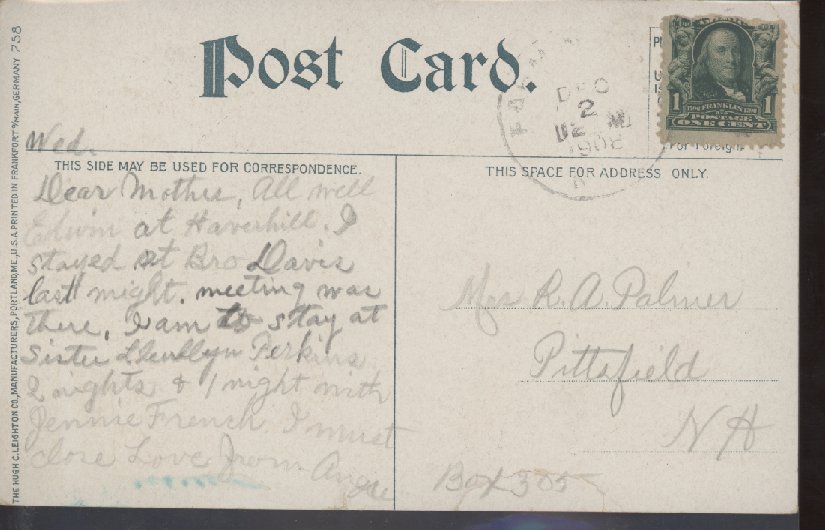 Post Card.
THE HUGH C. LEIGHTON CO., MANUFACTURERS, PORTLAND, ME., U.S.A. PRINTED IN FRANKFORT o/MAIN, GERMANY 758
DEC
2
1908
1 FRANKLIN 1
POSTAGE
ONE CENT
For Foreign
THIS SIDE MAY BE USED FOR CORRESPONDENCE.
THIS SPACE FOR ADDRESS ONLY.
Wed.
Dear Mother, All well
Edwin at Haverhill. I
stayed at Bro Davis
last night. meeting was
there. I am to stay at
Sister Llewllyn Perkins
2 nights & 1 night with
Jennie French I must
close Love from Angie
Mrs R. A. Palmer
Pittsfield
N H
Box 305